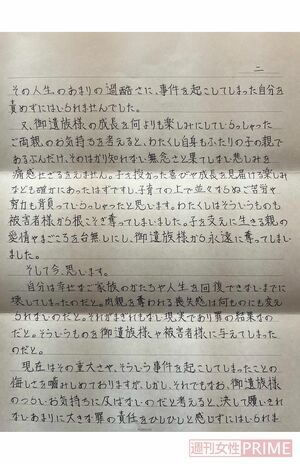 二
その人生のあまりの過酷さに、事件を起こしてしまった自分を
責めずにはいられませんでした。
又、御遺族様の成長を何よりも楽しみにしていらっしゃった
ご両親のお気持ちを考えると、わたくし自身もふたりの子の親で
あるぶんだけ、そのはかり知れない無念さと果てしない悲しみを
痛感せざるをえません。子を授かった喜びや成長を見届ける楽しみ
なども確かにあったはずですし、子育ての上で並々ならぬご苦労や
努力も背負っていらしったと思います。わたくしはそういうものも
被害者様から根こそぎ奪ってしまいました。子を支えに生きる親の
愛情やまごころを台無しにし、御遺族様から永遠に奪ってしまい
ました。
そして今、思います。
自分は幸せなご家族のかたちや人生を回復できないまでに
壊してしまったのだと。肉親を奪われる喪失感は何ものにも変え
られないのだと。それがまぎれもない現実であり罪の結果なの
だと。そういうものを御遺族様や被害者様に与えてしまった
のだと。
現在はその重大さや、そういう事件を起こしてしまったことの
悔しさを噛みしめておりますが、しかし、それでもなお、御遺族様
のつらいお気持ちに及ばないのだと考えると、決して贖いきれ
ないあまりに大きな罪の責任をひしひしと感じずにはいられま
週刊女性PRIME